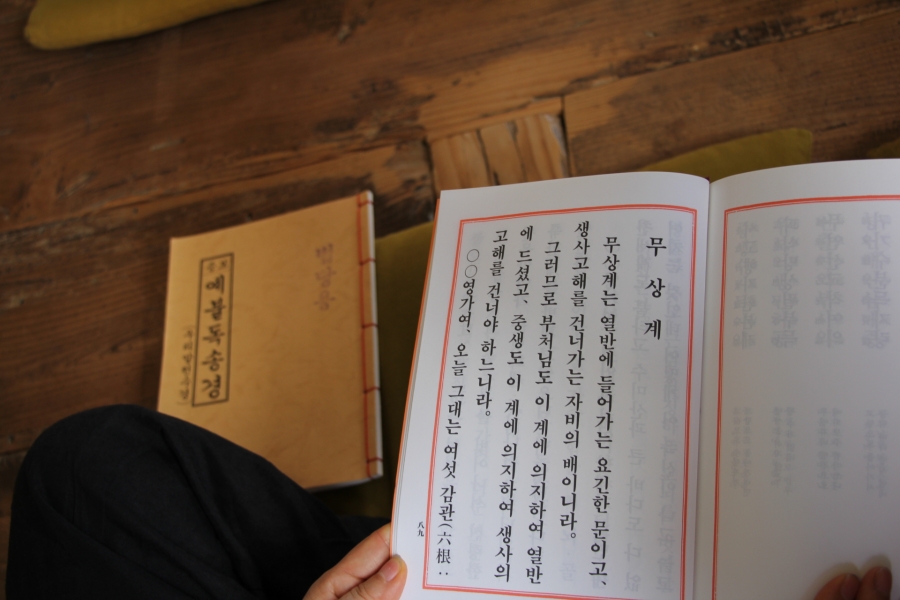 무상계
무상계는 열반에 들어가는 요긴한 문이고,
생사고해를 건너가는 자비의 배이니라.
그러므로 부처님도 이 계에 의지하여 열반
에 드셨고, 중생도 이 계에 의지하여 생사의
고해를 건너야 하느니라.
○○영가여, 오늘 그대는 여섯 감관(六根:
八九
법당용
예불독송경